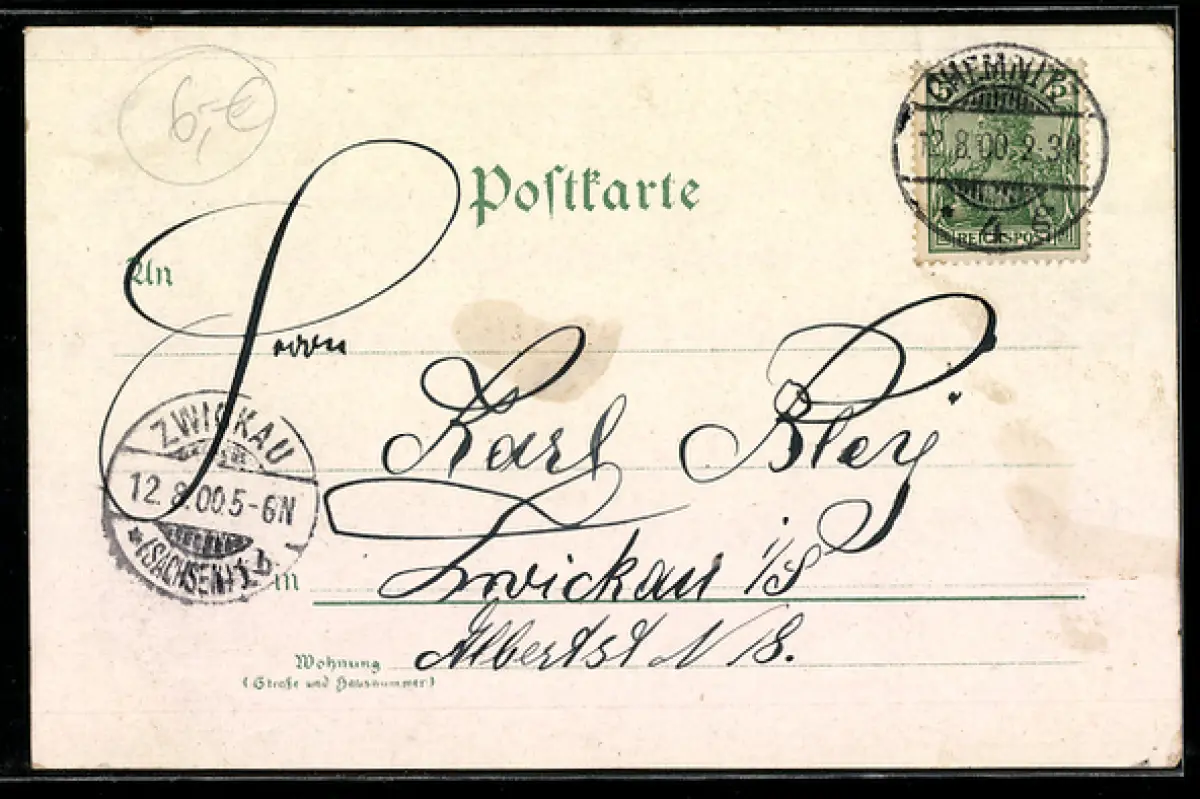 6,-€
Postkarte
CHEMNITZ
12.8.00.2-3N
* 4 g
REICHSPOST
An
Herrn
Karl Bley
ZWICKAU
12.8.00.5-6N
*(SACHSEN)1.b
in Zwickau i/S
Wohnung Albertst N 18.
(Straße und Hausnummer)